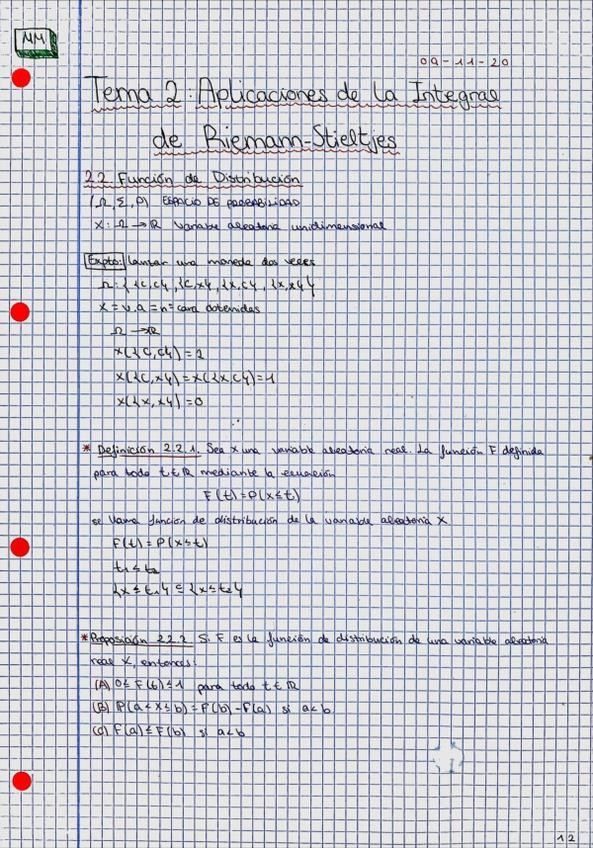 MM
09-11-20
Tema 2: Aplicaciones de la Integral
de Riemann-Stieltjes
2.2. Función de Distribución
(Ω, Σ, P) ESPACIO DE PROBABILIDAD
X: Ω → ℝ Variable aleatoria unidimensional
Expto: lanzar una moneda dos veces
Ω: {{C,C}, {C,X}, {X,C}, {X,X}}
X = v.a = nº cara obtenidas
Ω → ℝ
X({C,C}) = 2
X({C,X}) = X({X,C}) = 1
X({X,X}) = 0
* Definición 2.2.1. Sea X una variable aleatoria real. La función F definida
para todo t∈ℝ mediante la ecuación
F(t) = P(X≤t)
se llama función de distribución de la variable aleatoria X
F(t) = P(X≤t)
t₁≤t₂
{X≤t₁} ⊆ {X≤t₂}
*Proposición 2.2.2. Si F es la función de distribución de una variable aleatoria
real X, entonces:
(A) 0≤F(t)≤1 para todo t∈ℝ
(B) P(a<X≤b) = F(b)-F(a) si a<b.
(C) F(a)≤F(b) si a<b
12